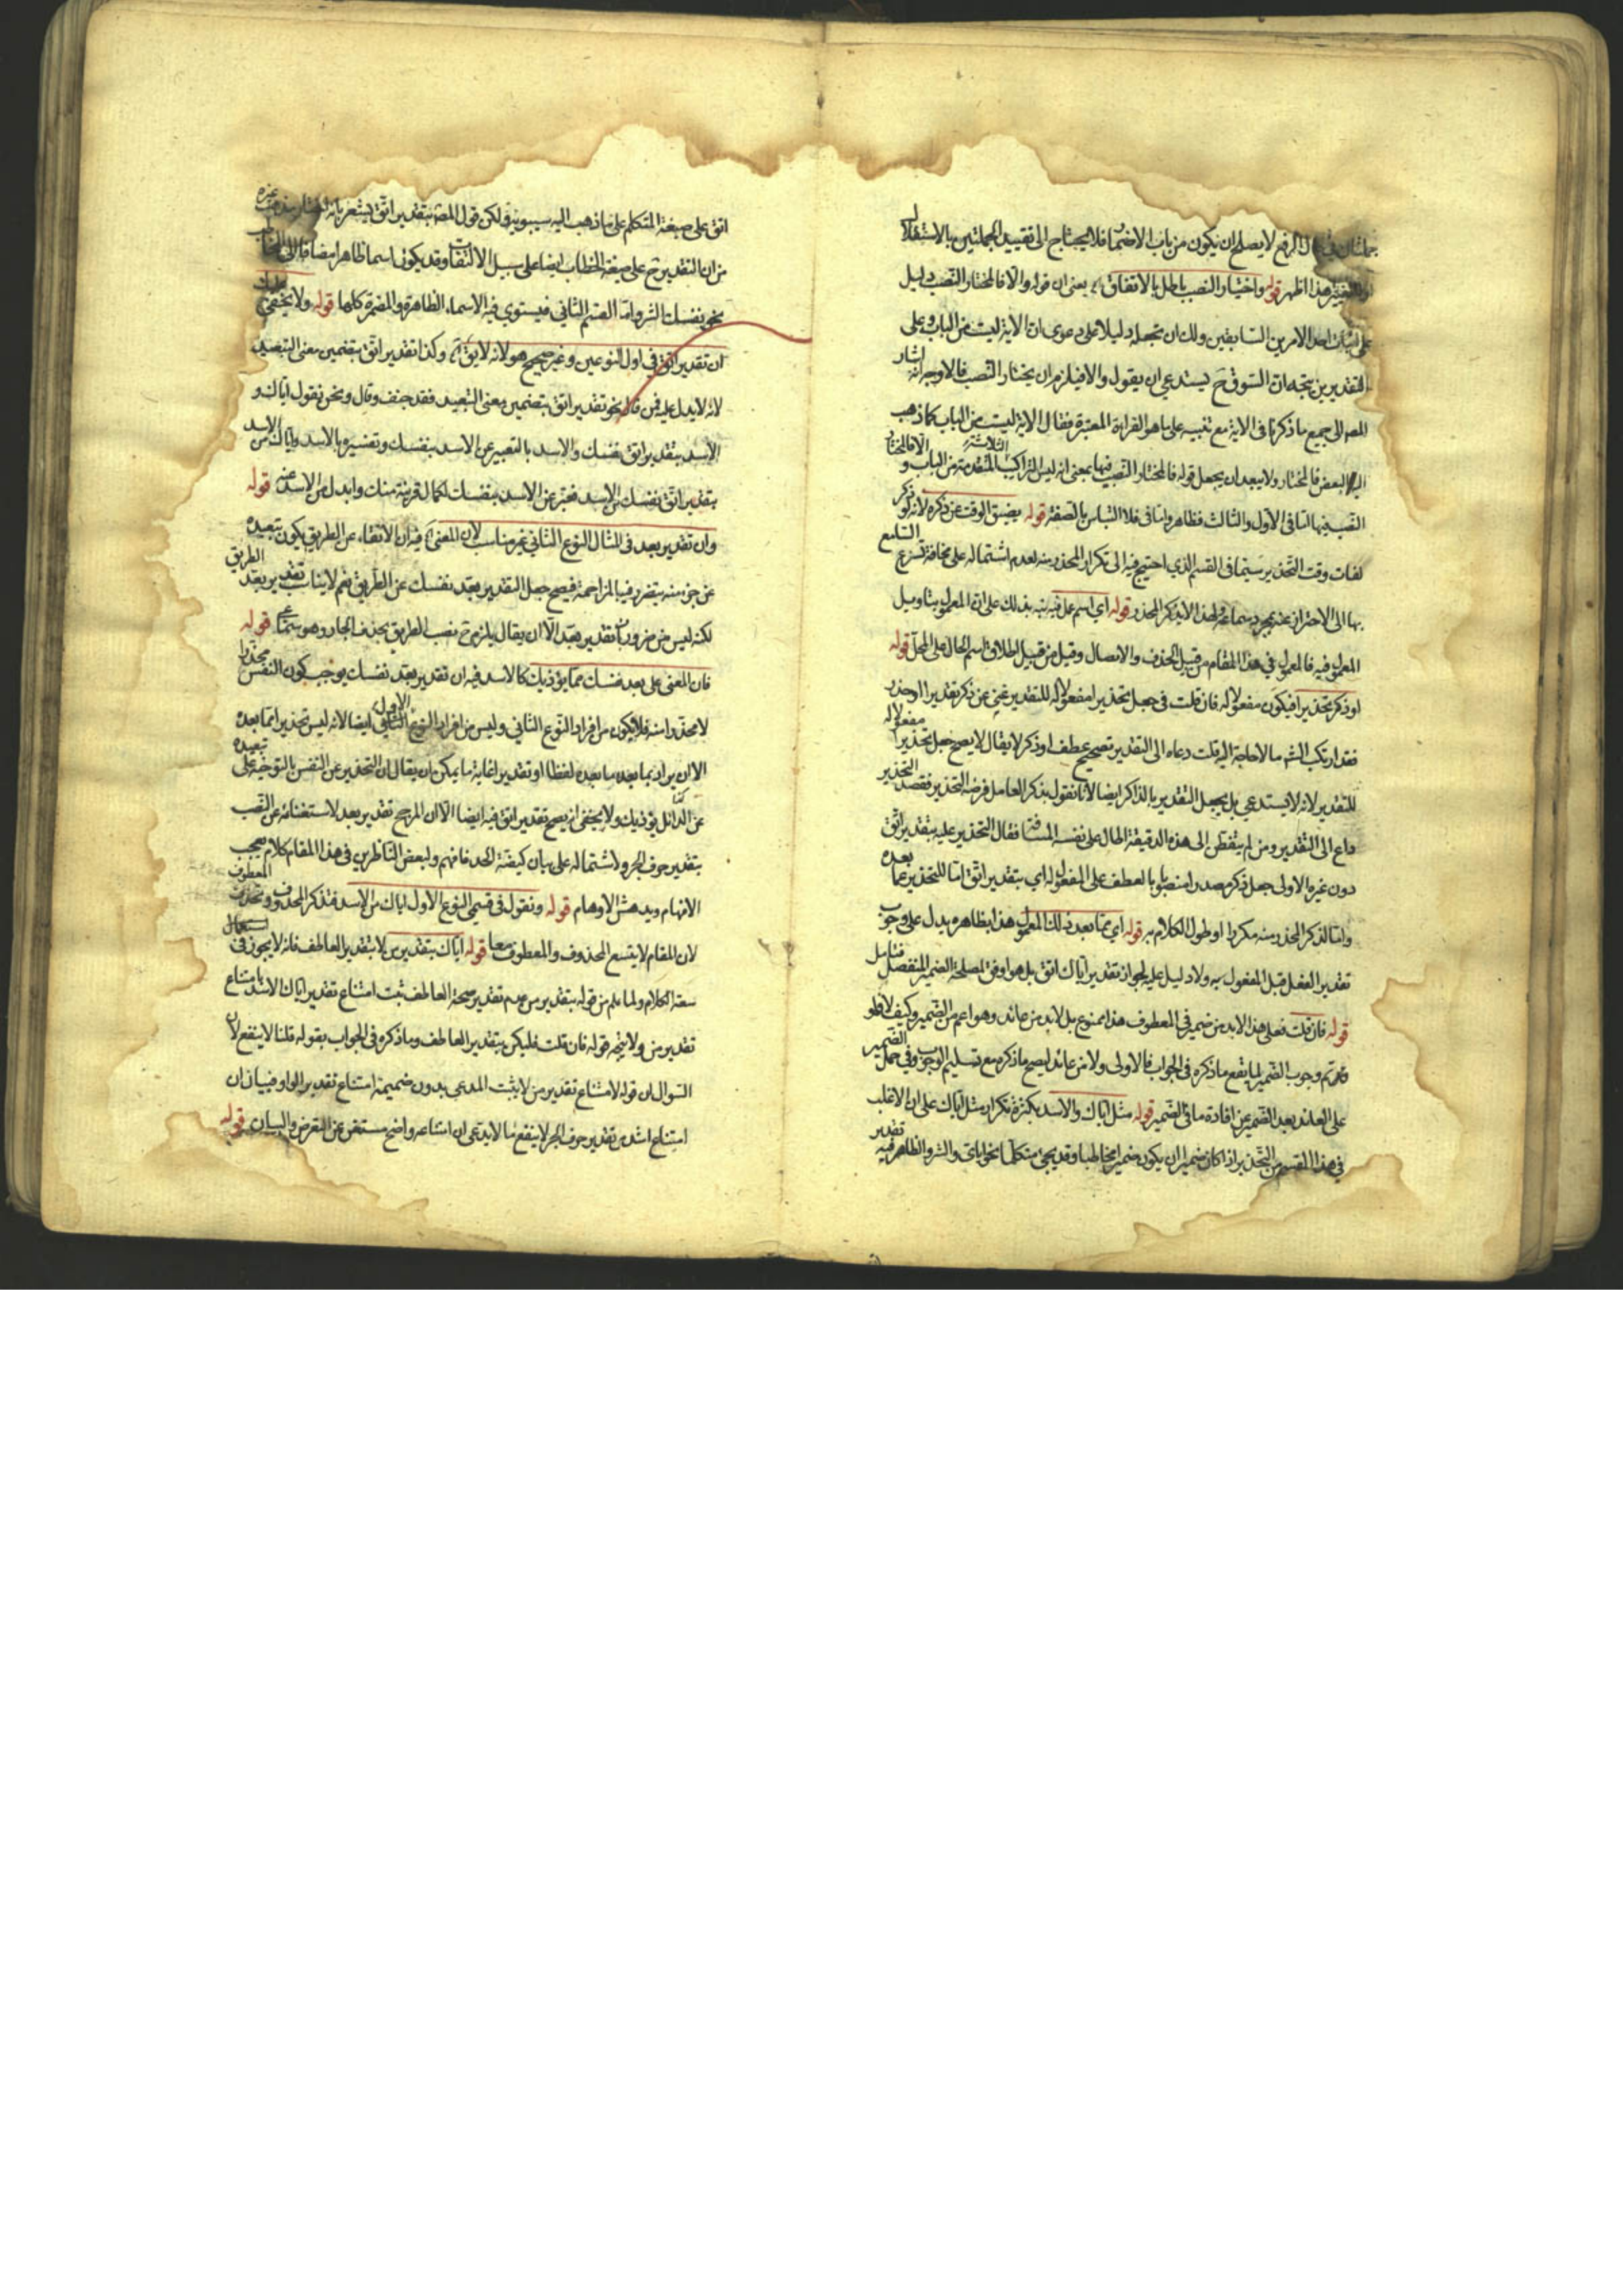 جملتان في حال الرفع لا يصلح ان يكون من باب الاضمار فلا يحتاج الى تقييد الجملتين بالاستقلال
هذا اظهر قوله واختيار النصب باطل بالاتفاق يعني ان قوله والا فالمختار النصب دليل
على اثبات احد الامرين السابقين ولك ان تجعله دليلا على دعوى ان الآية ليست من الباب وعلى
التقديرين يتجه ان السوق ح يستدعي ان يقول والا فيلزم ان يختار النصب فالاوجه انه اشار
المصـ الى جميع ما ذكرنا في الآية مع تنبيه على ما هو القراءة المعتبرة فقال الآية ليست من الباب كما ذهب
اليه البعض فالمختار ولا يبعد ان يجعل قوله فالمختار النصب فيها بمعنى انه ليس التراكيب الثلاثة المتقدمة من الباب والا فالمختار
النصب فيها اما في الاول والثالث فظاهر واما في فلا التباس بالصفة قوله يضيق الوقت عن ذكره لانه لو ذكر
لفات وقت التحذير سيما في القسم الذي احتيج فيه الى تكرار المحذر منه لعدم اشتماله على مخافة تسرع السامع
بها الى الاحتراز عنه بمجرد سماعه ولهذا لا يذكر المحذر قوله اي اسم عمل فيه نبه بذلك على ان المعمول بتاويل
المعمول فيه فالمعمول في هذا المقام من قبيل الحذف والايصال وقيل من قبيل اطلاق اسم الحال على المحل قوله
او ذكر تحذيرا فيكون مفعولا له فان قلت في جعل تحذيرا مفعولا له للتقدير غنى عن ذكر تقدير او حذر
فقد ارتكب الشم ما لا حاجة اليه قلت دعاه الى التقدير تصحيح عطف او ذكر لا يقال لا يصح جعل تحذيرا مفعولا له
للتقدير لانه لا يستدعي بل يجعل التقدير بالذاكر ايضا لانا نقول بذكر العامل فرضه التحذير فقصد التحذير
داع الى التقدير ومن لم يتفطن الى هذه الدقيقة احال على نفسه المسافة فقال التحذير عليه بتقدير اتق
دون غيره الاولى جعل ذكر مصدرا منصوبا بالعطف على المفعول له اي بتقدير اتق اما للتحذير عما بعده
واما لذكر المحذر منه مكررا او طول الكلام به قوله اي مما بعد ذلك المعمول هذا بظاهره يدل على وجوب
تقدير الفعل قبل المفعول به ولا دليل عليه لجواز تقدير اياك اتق بل هو اوفق لمصلحة الضمير المنفصل فتامل
قوله فان قلت فعلى هذا لابد من ضمير في المعطوف هذا ممنوع بل لابد من عائد وهو اعم من الضمير وكيف لا فلو
تم وجوب الضمير لما ينفع ما ذكره في الجواب فالاولى ولا من عائد ليصح ما ذكره مع تسليم الوجوب وفي حمل الضمير
على العائد بعد الضمير عن افادة ما في الضمير قوله مثل اياك والاسد بكثرة تكرار مثل اياك على ان الاغلب
في هذا القسم من التحذير اذا كان ضميرا ان يكون ضميرا مخاطبا وقد يجئ متكلما نحو اياي والشر والظاهر فيه تقدير
اتق على صيغة المتكلم على ما ذهب اليه سيبويه ولكن قول المصـ بتقدير اتق يشعر بانه اختار مذهب غيره
من ان التقدير ح على صيغة الخطاب ايضا على سبيل الالتفات وقد يكون اسما ظاهرا مضافا الى المخاطب
نحو نفسك والشر واما القسم الثاني فيستوي فيه الاسماء الظاهرة والمضمرة كلها قوله ولا يخفى عليك
ان تقدير اتق في اول النوعين وغير صحيح هو لانه لا يق وكذا تقدير اتق بتضمين معنى التبعيد
لانه لا يدل عليه فمن قال نحو تقدير اتق بتضمين معنى التبعيد فقد جنف وقال ونحن نقول اياك و
الاسد بتقدير اتق نفسك والاسد بالتعبير عن الاسد بنفسك وتفسيره بالاسد واياك من الاسد
بتقدير اتق نفسك من الاسد فعبر عن الاسد بنفسك لكمال قربته منك وابدل من الاسد عنه قوله
وان تقدير بعد في مثال النوع الثاني غير مناسب لان المعنى فيه ان الاتقاء عن الطريق يكون بتبعيده
عن جزء منه يتضرر فيه بالمزاحمة فيصح جعل التقدير بعد نفسك عن الطريق نعم لا يناسب تقدير بعد الطريق
لكنه ليس من ضروريات تقدير بعد الا ان يقال يلزم ح نصب الطريق بحذف الجار وهو سماعي قوله
فان المعنى على بعد نفسك مما يؤذيك كالاسد فيه ان تقدير بعد نفسك يوجب كون النفس محذرا
لا محذرا منه فلا يكون من افراد النوع الثاني وليس من افراد النوع الاول ايضا لانه ليس تحذيرا مما بعده
الا ان يراد بما بعده ما بعده لفظا او تقديرا غاية ما يمكن ان يقال ان التحذير عن النفس بالتوجيه على تبعيده
عن الدائل يؤذيك ولا يخفى انه يصح تقدير اتق فيه ايضا الا ان المرجح تقدير بعد لاستغنائه عن النصب
بتقدير حرف الجر ولاشتماله على بيان كيفية الحذر فافهم ولبعض الناظرين في هذا المقام كلام يعجب
الافهام ويدهش الاوهام قوله ونقول في قسمي النوع الاول اياك من الاسد فتذكر المحذوف وتحذف المعطوف
لان المقام لا يتسع المحذوف والمعطوف معا قوله اياك بتقدير من لا بتقدير العاطف فانه لا يجوز في
سعة الكلام ولما علم من قوله بتقدير من عدم تقدير صحة العاطف ثبت امتناع تقدير اياك الاسد بامتناع
تقدير من ولا يتجه قوله فان قلت فليكن بتقدير العاطف وما ذكره في الجواب بقوله قلنا لا ينفع لان
السوال ان قوله لامتناع تقدير من لا يثبت المدعى بدون ضميمة امتناع تقدير الواو فبيان ان
امتناع اشد من تقدير حرف الجر لا ينفع ما لا يدعى ان امتناعه واضح مستغن عن التعرض والبيان قوله